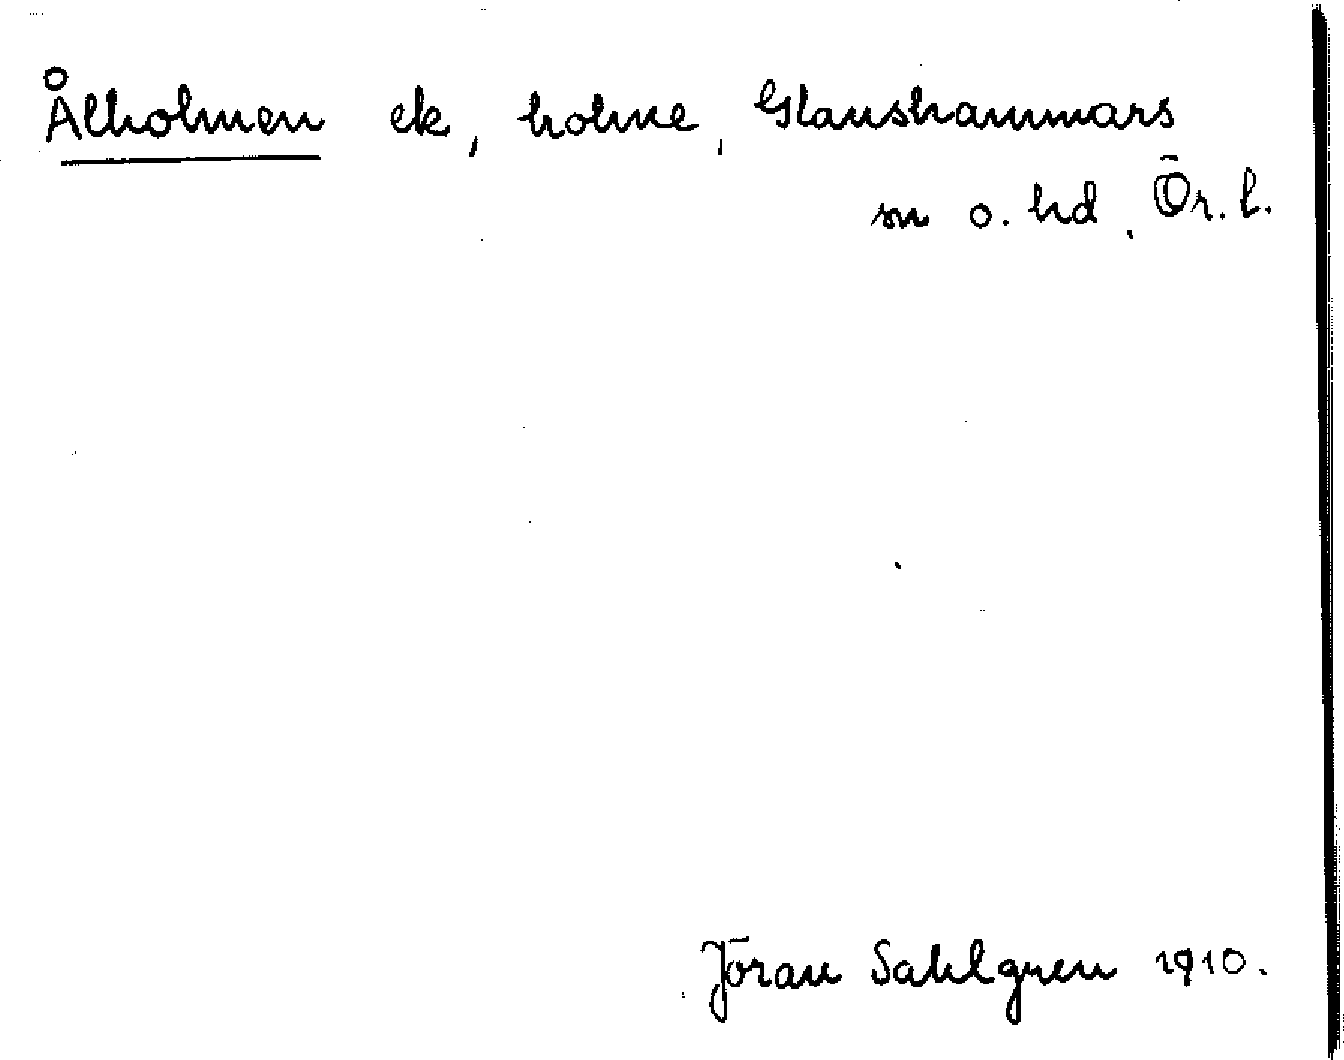 Ålholmen ek, holme, Glanshammars
sn o. hd, Ör. l.
Jöran Sahlgren 1910.